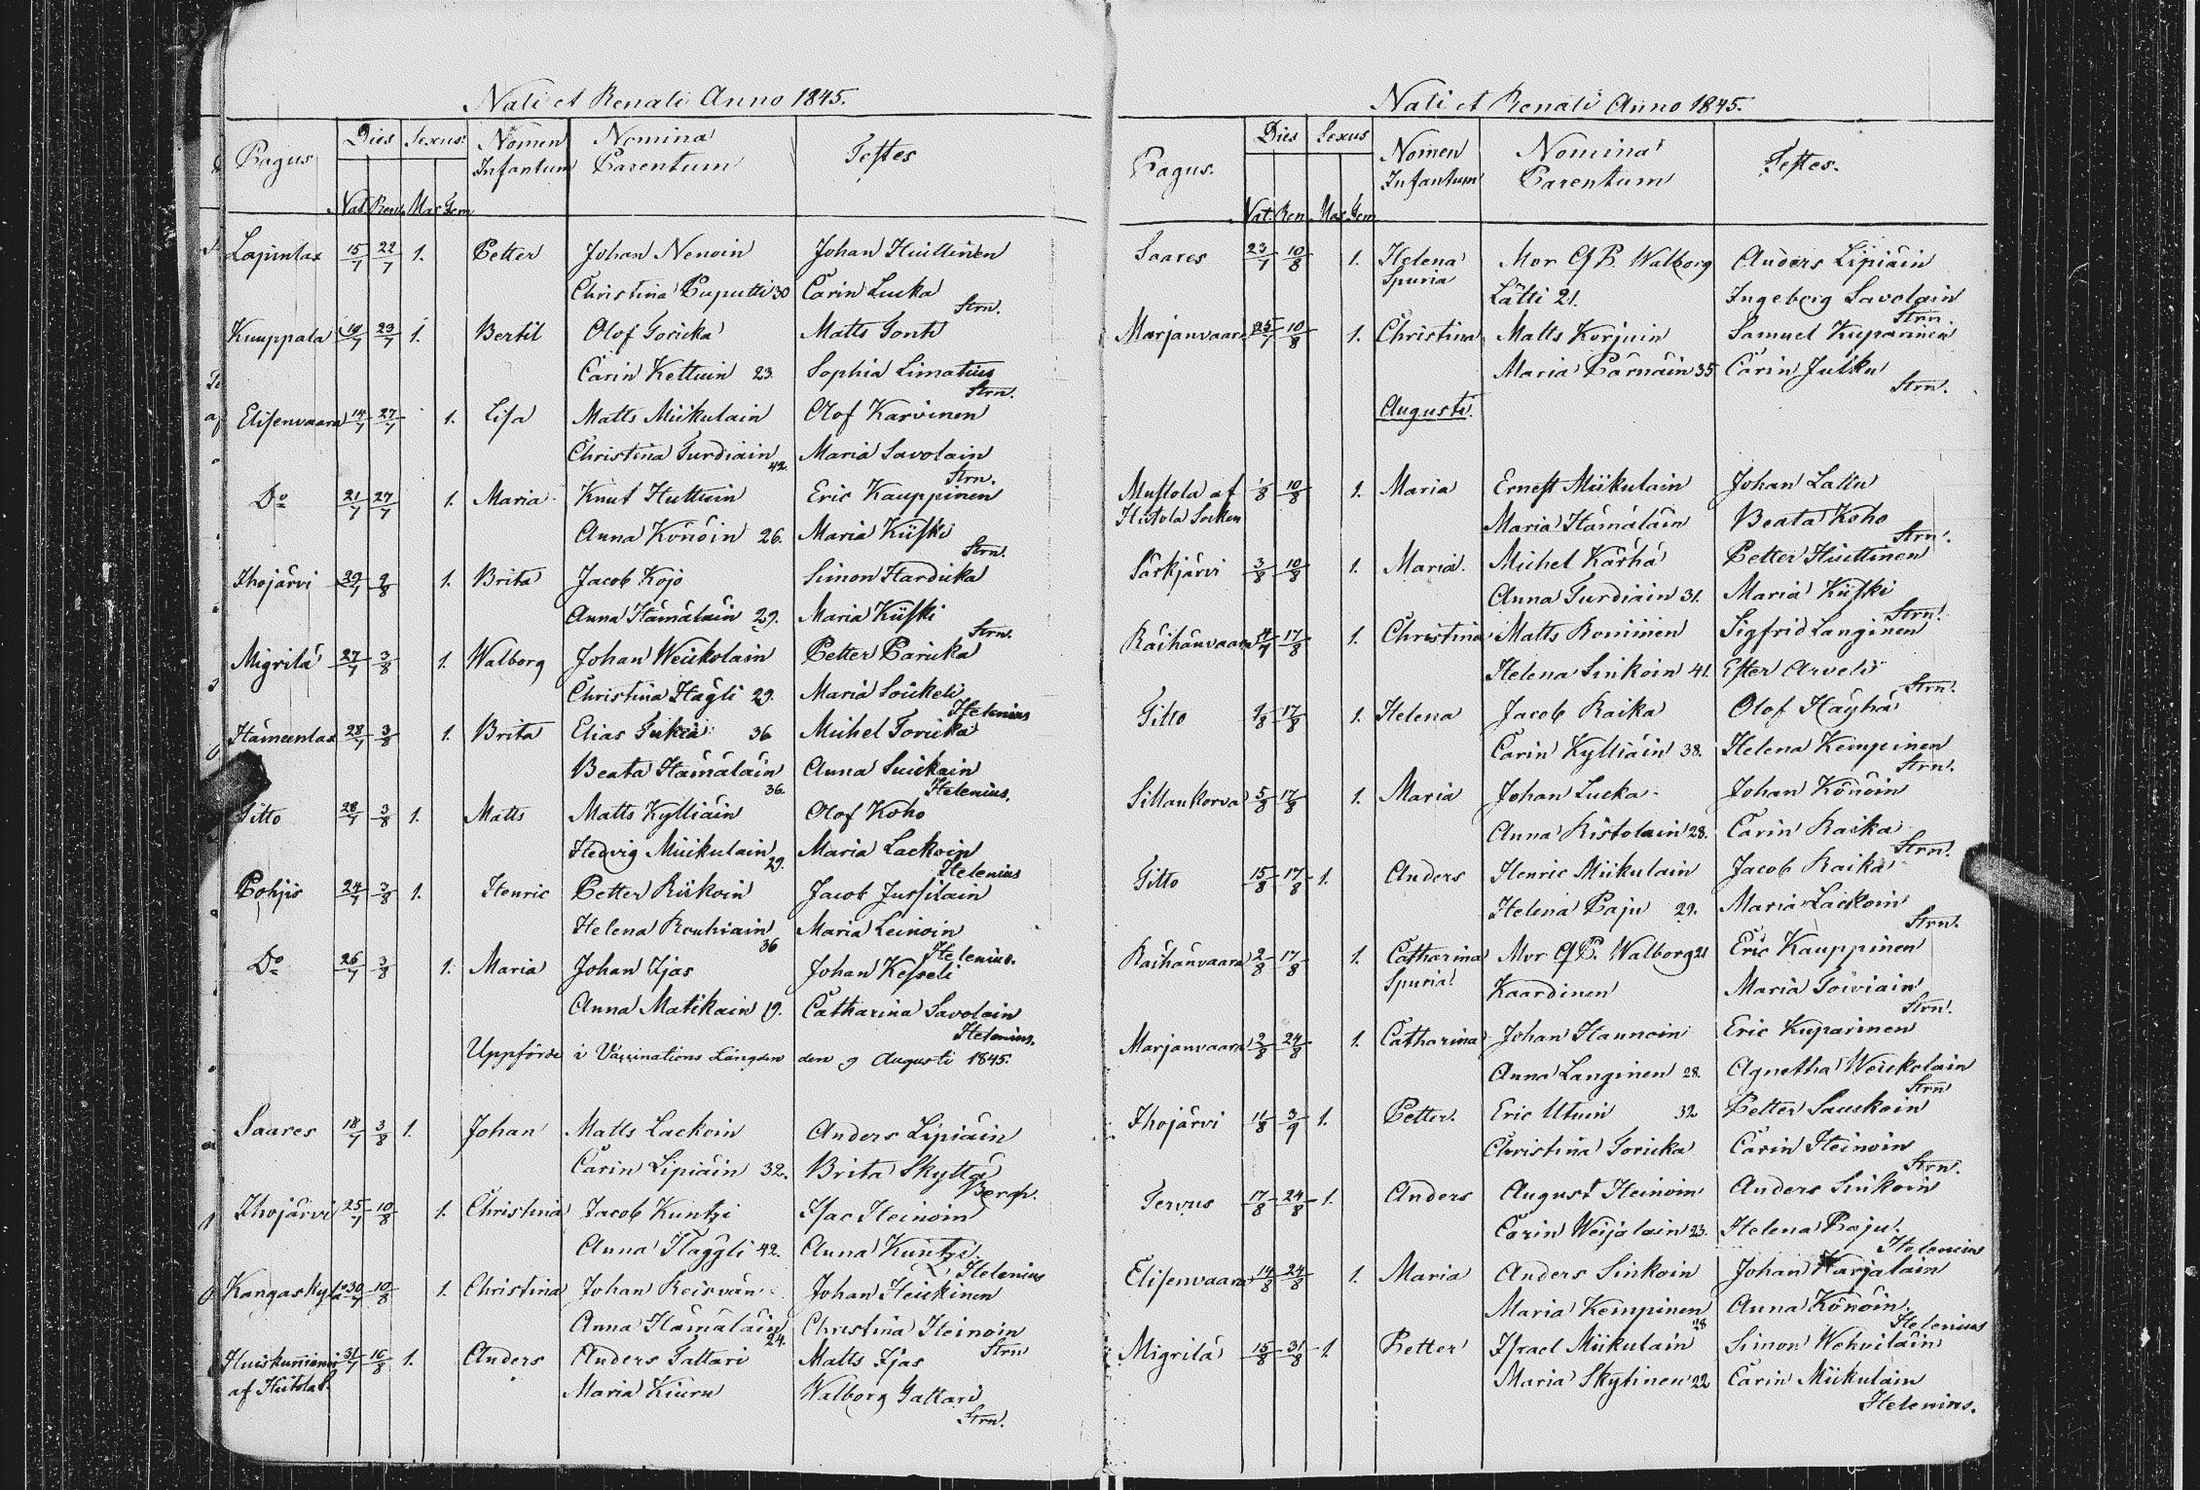 Nati et Renati Anno 1845.
Pagus Dies Sexus Nomen Infantum Nomina Parentum Testes
Nat. Ren. Mas Fem.
Lapinlax 15/7 22/7 1. Petter Johan Nenoin Johan Huittinen
Christina Puputti 30 Carin Lucka
Strn.
Kuuppala 19/7 23/7 1. Bertil Olof Toricka Matts Tontti
Carin Kettuin 23. Sophia Limatius
Strn.
Elisenvaara 14/7 27/7 1. Lisa Matts Miikulain Olof Karvinen
Christina Turdiain 42. Maria Savolain
Strn.
Do 21/7 27/7 1. Maria Knut Huttuin Eric Kauppinen
Anna Könöin 26. Maria Kiiski
Strn.
Ihojärvi 29/7 2/8 1. Brita Jacob Kojo Simon Harducka
Anna Hämäläin 29. Maria Kiiski
Strn.
Migrilä 27/7 3/8 1. Walborg Johan Weickolain Petter Paricka
Christina Hägli 29. Maria Soickeli
Helenius
Hämeenlax 28/7 3/8 1. Brita Elias 36 Michel Toricka
Beata Hämäläin 36. Anna Suickain
Helenius.
Titto 28/7 3/8 1. Matts Matts Kylliäin Olof Koho
Hedvig Miikulain 29. Maria Lackoin
Helenius
Pohjis 24/7 3/8 1. Henric Petter Riikoin Jacob Jussilain
Helena Rouhiain 36 Maria Leinoin
Helenius.
Do 26/7 3/8 1. Maria Johan Ijas Johan Kesseli
Anna Matikain 19. Catharina Savolain
Helenius.
Uppförde i Vaccinations Längden den 9 Augusti 1845.
Saares 18/7 3/8 1. Johan Matts Lackoin Anders Lipiäin
Carin Lipiäin 32. Brita Skyttä
Bergh.
Ihojärvi 25/7 10/8 1. Christina Jacob Kuntzi Isac Heinoin
Anna Häggli 42. Anna Kuntzi
Helenius
Kangaskylä 30/7 10/8 1. Christina Johan Reisvän Johan Heickinen
Anna Hämäläin 24. Christina Heinoin
Strn
Huiskunniemi 31/7 10/8 1. Anders Anders Tattari Matts Ijas
af Hiitola Maria Kiuru Walborg Tattari
Strn.
Nati et Renati Anno 1845.
Pagus. Dies Sexus Nomen Infantum Nomina Parentum Testes.
Nat. Ren. Mas Fem
Saares 23/7 10/8 1. Helena Mor QP. Walborg Anders Lipiäin
Spuria Lätti 21. Ingeborg Savolain
Strn
Marjanvaara 25/7 10/8 1. Christina Matts Korjuin Samuel Kuparinen
Maria Pärnäin 35 Carin Julku
Strn.
Augusti.
Mustola af 1/8 10/8 1. Maria Ernest Miikulain Johan Lattu
Hiitola Socken Maria Hämäläin Beata Koho
Strn.
Särkjärvi 3/8 10/8 1. Maria. Michel Kärhä Petter Huittinen
Anna Turdiain 31. Maria Kiiski
Strn.
Räihänvaara 17/8 1. Christina Matts Roninen Sigfrid Langinen
Helena Sinkoin 41. Ester Arveli
Strn.
Titto 17/8 1. Helena Jacob Raika Olof Häyhä
Carin Kylliäin 38. Helena Kempinen
Strn.
Sillankorva 5/8 17/8 1. Maria Johan Lucka Johan Könöin
Anna Ristolain 28. Carin Raika
Strn.
Titto 15/8 17/8 1. Anders Henric Miikulain Jacob Raika
Helena Paju 29. Maria Lackoin
Strn.
Räihänvaara 2/8 17/8 1. Catharina Mor QP. Walborg 21 Eric Kauppinen
Spuria Kaardinen Maria Toiviain
Strn.
Marjanvaara 2/8 24/8 1. Catharina Johan Haunoin Eric Kuparinen
Anna Langinen 28. Agnetha Weickolain
Strn
Ihojärvi 11/8 3/9 1. Petter. Eric Utuin 32 Petter Sauckoin
Christina Toricka Carin Heinoin
Strn.
Tervus 17/8 24/8 1. Anders August Heinoin Anders Sinkoin
Carin Weijalain 23. Helena Paju.
Helenius
Elisenvaara 14/8 24/8 1. Maria Anders Sinkoin Johan Karjalain
Maria Kempinen 28 Anna Könöin.
Helenius
Migrilä 15/8 31/8 1. Petter Israel Miikulain Simon Wehviläin
Maria Skytinen 22 Carin Miikulain
Helenius.